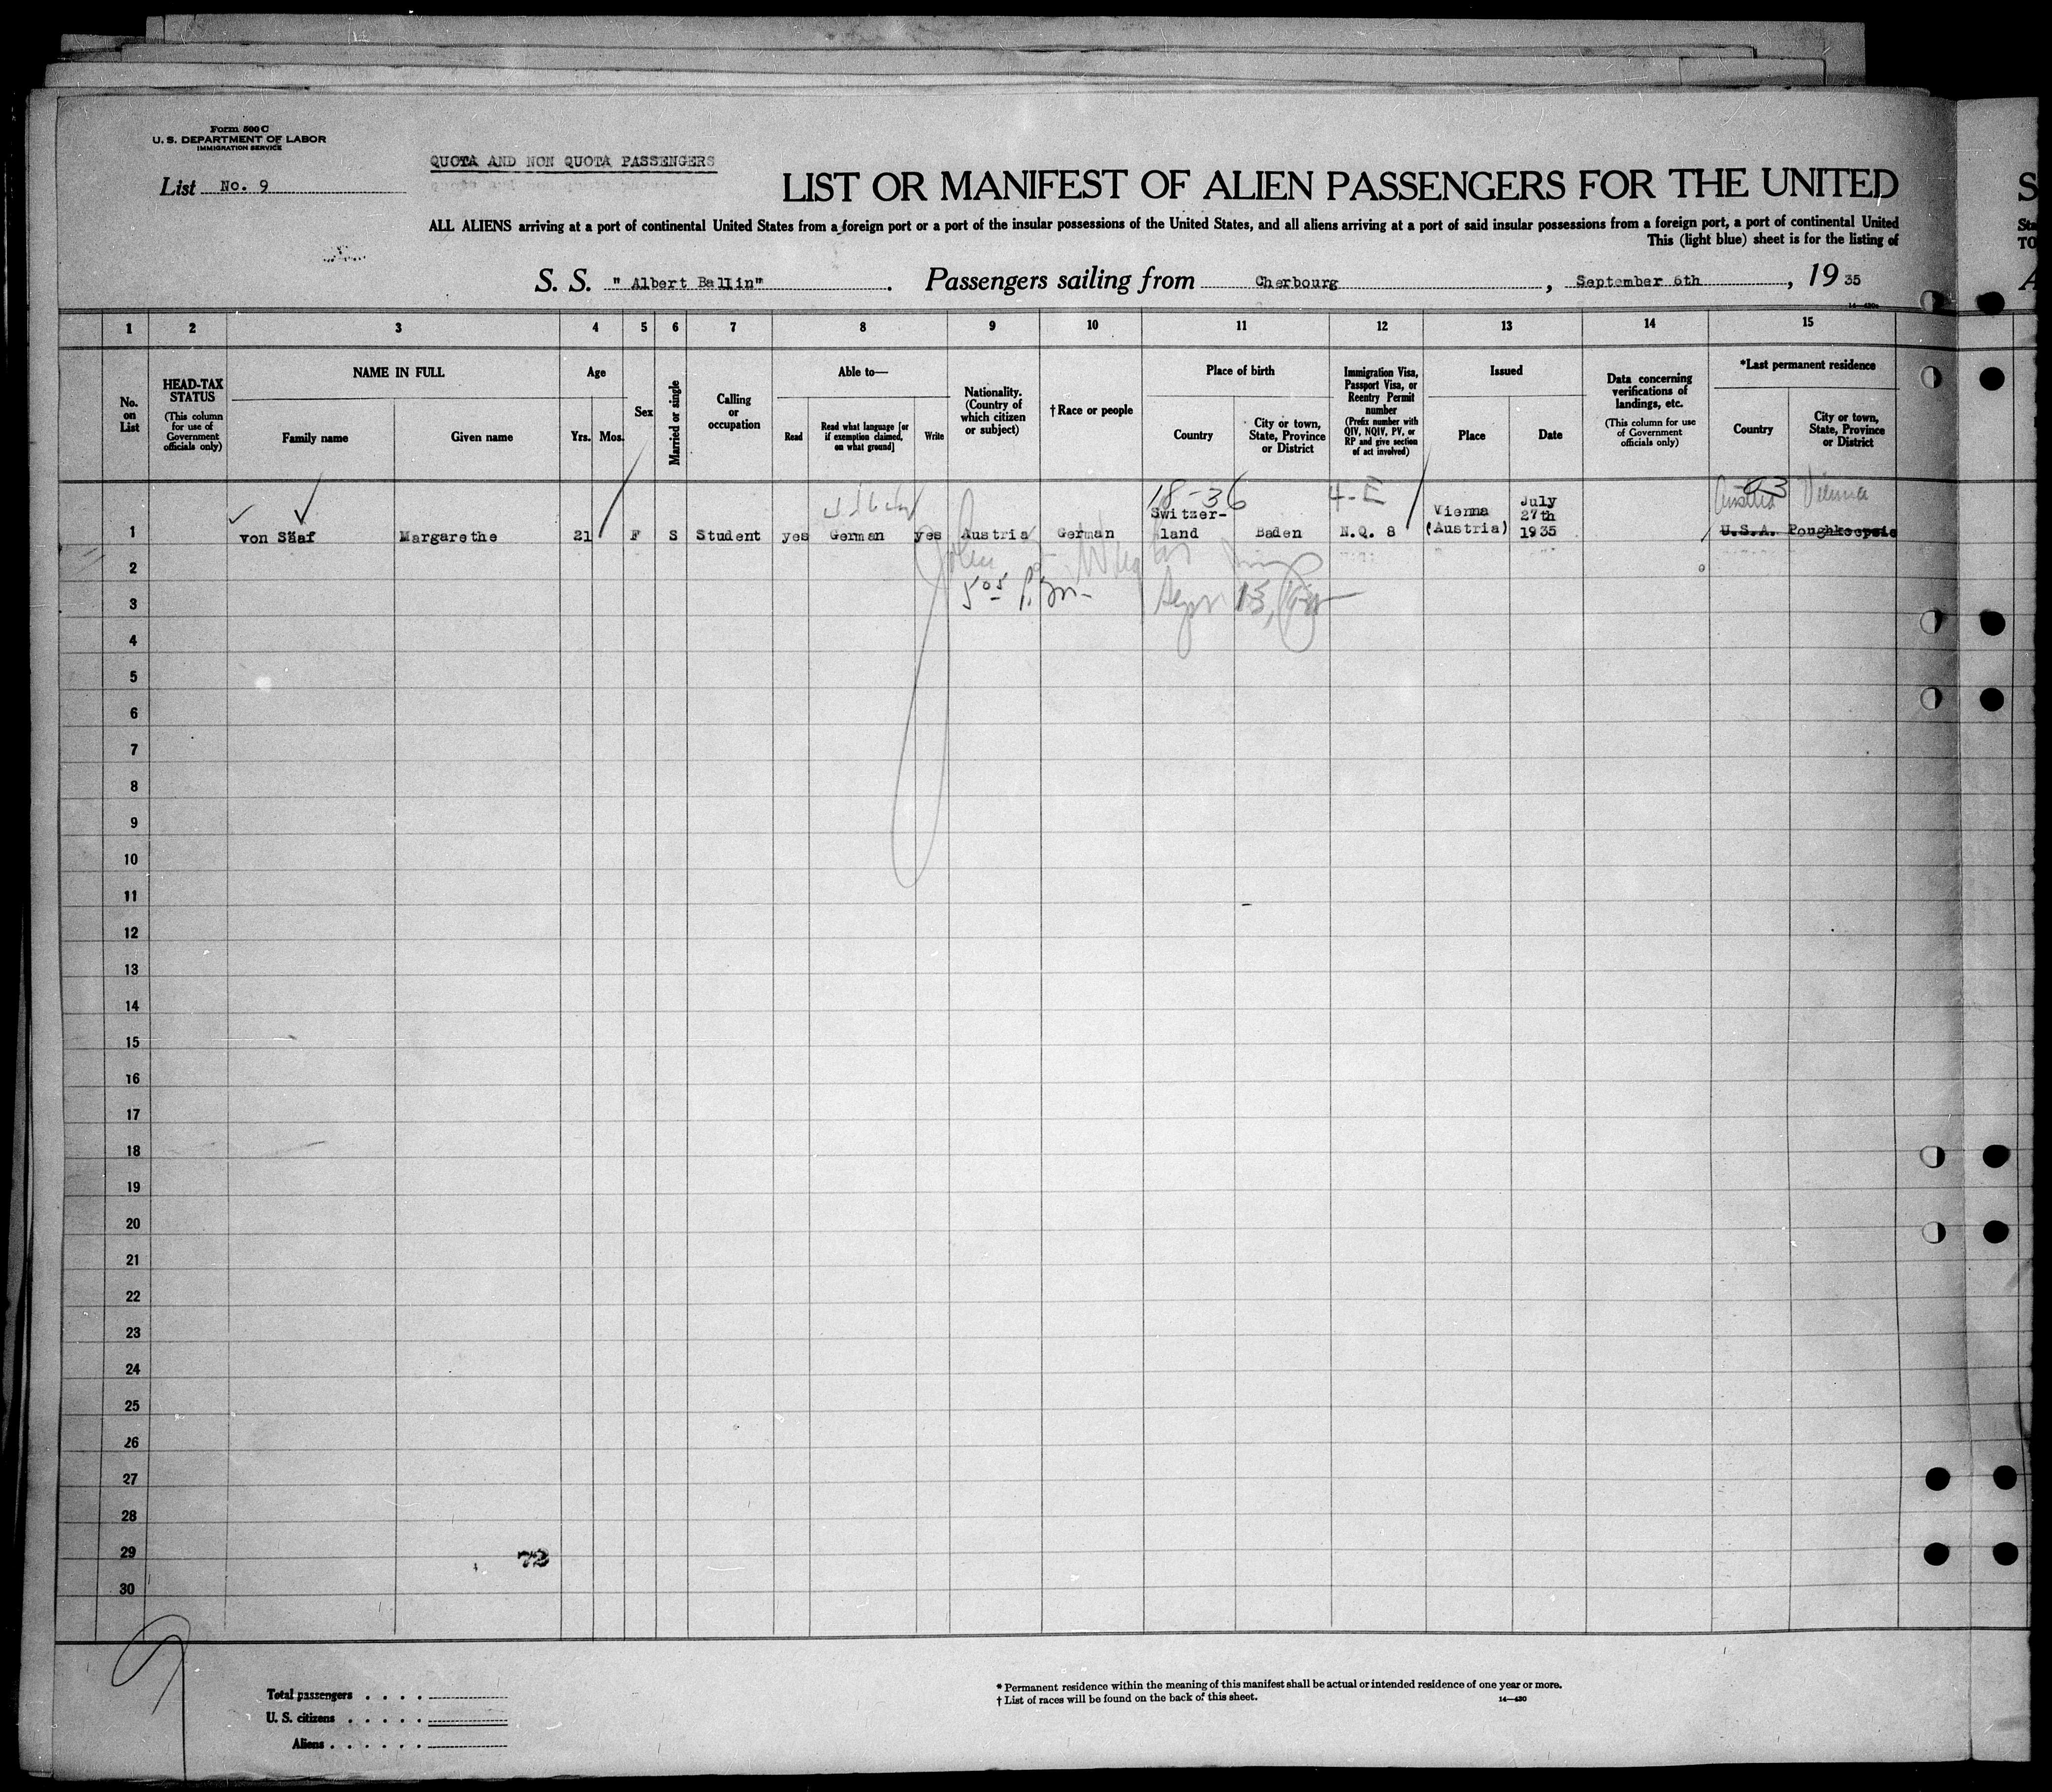 Form 500 C
U. S. DEPARTMENT OF LABOR
IMMIGRATION SERVICE
List No. 9
QUOTA AND NON QUOTA PASSENGERS
LIST OR MANIFEST OF ALIEN PASSENGERS FOR THE UNITED
ALL ALIENS arriving at a port of continental United States from a foreign port or a port of the insular possessions of the United States, and all aliens arriving at a port of said insular possessions from a foreign port, a port of continental United
This (light blue) sheet is for the listing of
S. S. "Albert Ballin". Passengers sailing from Cherbourg, September 6th, 1935
1 2 3 4 5 6 7 8 9 10 11 12 13 14 15
No. on List
HEAD-TAX STATUS
(This column for use of Government officials only)
NAME IN FULL
Family name
Given name
Age
Yrs. Mos.
Sex
Married or single
Calling or occupation
Able to—
Read
Read what language [or if exemption claimed, on what ground]
Write
Nationality. (Country of which citizen or subject)
†Race or people
Place of birth
Country
City or town, State, Province or District
Immigration Visa, Passport Visa, or Reentry Permit number
(Prefix number with QIV, NQIV, PV, or RP and give section of act involved)
Issued
Place
Date
Data concerning verifications of landings, etc.
(This column for use of Government officials only)
*Last permanent residence
Country
City or town, State, Province or District
18-36 4-E Austria Vienna
1 von Sääf Margarethe 21 F S Student yes German yes Austria German Switzer-land Baden N.Q. 8 Vienna (Austria) July 27th 1935 U.S.A. Poughkeepsie
2
3
4
5
6
7
8
9
10
11
12
13
14
15
16
17
18
19
20
21
22
23
24
25
26
27
28
29
72
30
9
Total passengers . . . .
U. S. citizens . . . . .
Aliens . . . . . .
* Permanent residence within the meaning of this manifest shall be actual or intended residence of one year or more.
† List of races will be found on the back of this sheet.
14—430